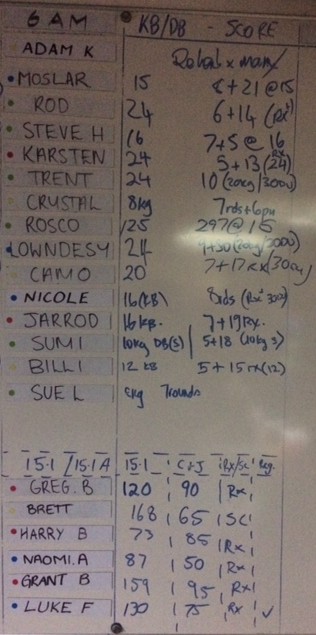 6 AM KB/DB - SCORE
ADAM K
MOSLAR 15 8+21@15
ROD 24 6+14 (Rx)
STEVE H 16 7+5@16
KARSTEN 24 5+13 (24)
TRENT 24 10 (20kg/300m)
CRYSTAL 8kg 7rds+6pu
ROSCO 125 297@15
LOWNDESY 24
CAMO 20 7+17Rx (300m)
NICOLE 16(KB) 8rds (Rx 300)
JARROD 16KB. 7+19Rx.
SUMI 10kg DB(S) 5+18 (10kgs)
BILLI 12 KB 5+15rx(12)
SUE L 8kg 7rounds
15.1 / 15.1A 15.1 C+J Rx/Sc Reg.
GREG. B 120 90 Rx
BRETT 168 65 SC
HARRY B 73 85 Rx
NAOMI. A 87 50 Rx
GRANT B 159 95 Rx
LUKE F 130 75 Rx ✓